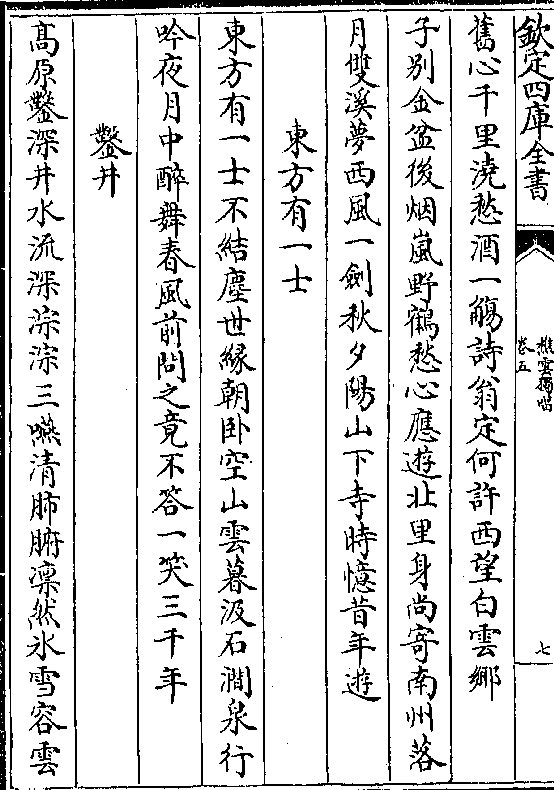 欽定四庫全書
樵雲獨唱
卷五
七
舊心千里澆愁酒一觴詩翁定何許西望白雲鄉
子别金盆後烟嵐野鶴愁心應遊北里身尚寄南州落
月雙溪夢西風一劍秋夕陽山下寺時憶昔年遊
東方有一士
東方有一士不結塵世緣朝卧空山雲暮汲石澗泉行
吟夜月中醉舞春風前問之竟不答一笑三千年
鑿井
高原鑿深井水流深淙淙三嚥清肺腑凛然氷雪容雲